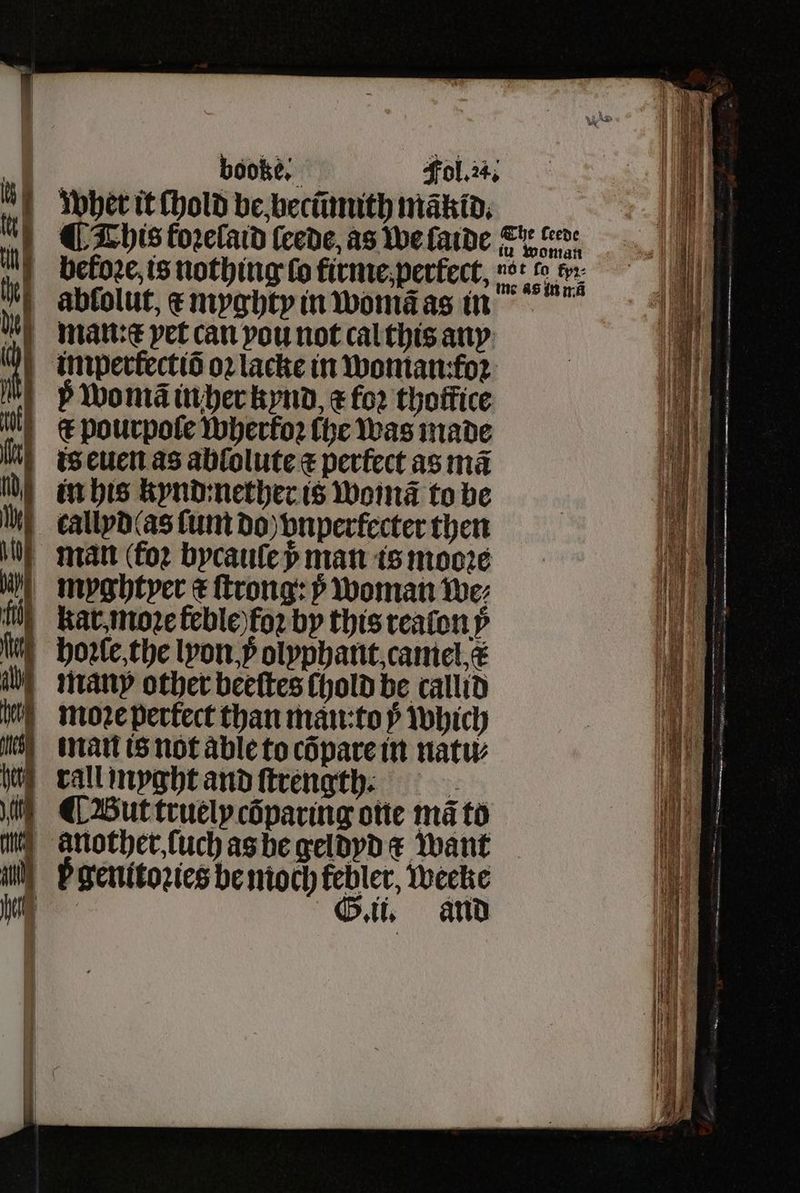 booke. Fol.24.
wher it shold be, becūmith mākīd.
¶ This foꝛesaid seede, as we saide
befoꝛe, is nothing so firme, perfect,
absolut, & myghty in womā as in
man: & yet can you not cal this any
imperfectiō oꝛ lacke in woman: foꝛ
þͤ womā in her kynd, & foꝛ thoffice
& pourpose wherfoꝛ she was made
is euen as absolute & perfect as mā
in his kynd: nether is womā to be
callyd (as sum do) vnperfecter then
man (foꝛ bycause þͤ man is mooꝛe
myghtyer & strong: þͤ woman we⸗
kar, moꝛe feble) foꝛ by this reason þͤ
hoꝛse, the lyon, þͤ olyphant, camel, &
many other beestes shold be callid
moꝛe perfect than man: to þͤ which
man is not able to cōpare in natu⸗
rall myght and strength.
¶ But truely cōparing one mā to
another, such as be geldyd & want
þͤ genitoꝛies be moch febler, weeke
G.ii. and
The seede
in woman
not so fyr⸗
me as in mā